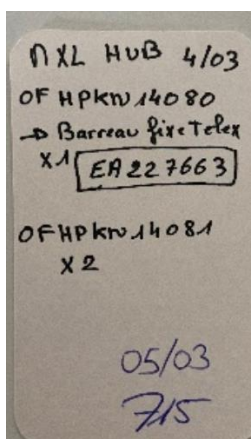 MXL HUB 4/03
OF HPKN14080
→ Barreau fixe Telex
X1 EA227663
OF HPKN14081
X2
05/03
715